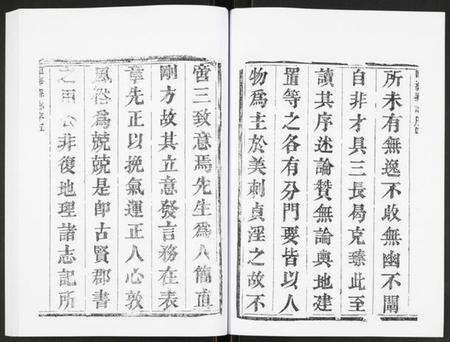 所未有無逸不敢無幽不闡
自非才具三長曷克臻此至
讀其序述論贊無論輿地建
置等之各有分門要皆以人
物為主於美刺貞淫之故不
啻三致意焉先生為人簡直
剛方故其立意發言務在表
章先正以挽氣運正人心敦
風俗為兢兢是即古賢郡書
之 非復地理諸志記所